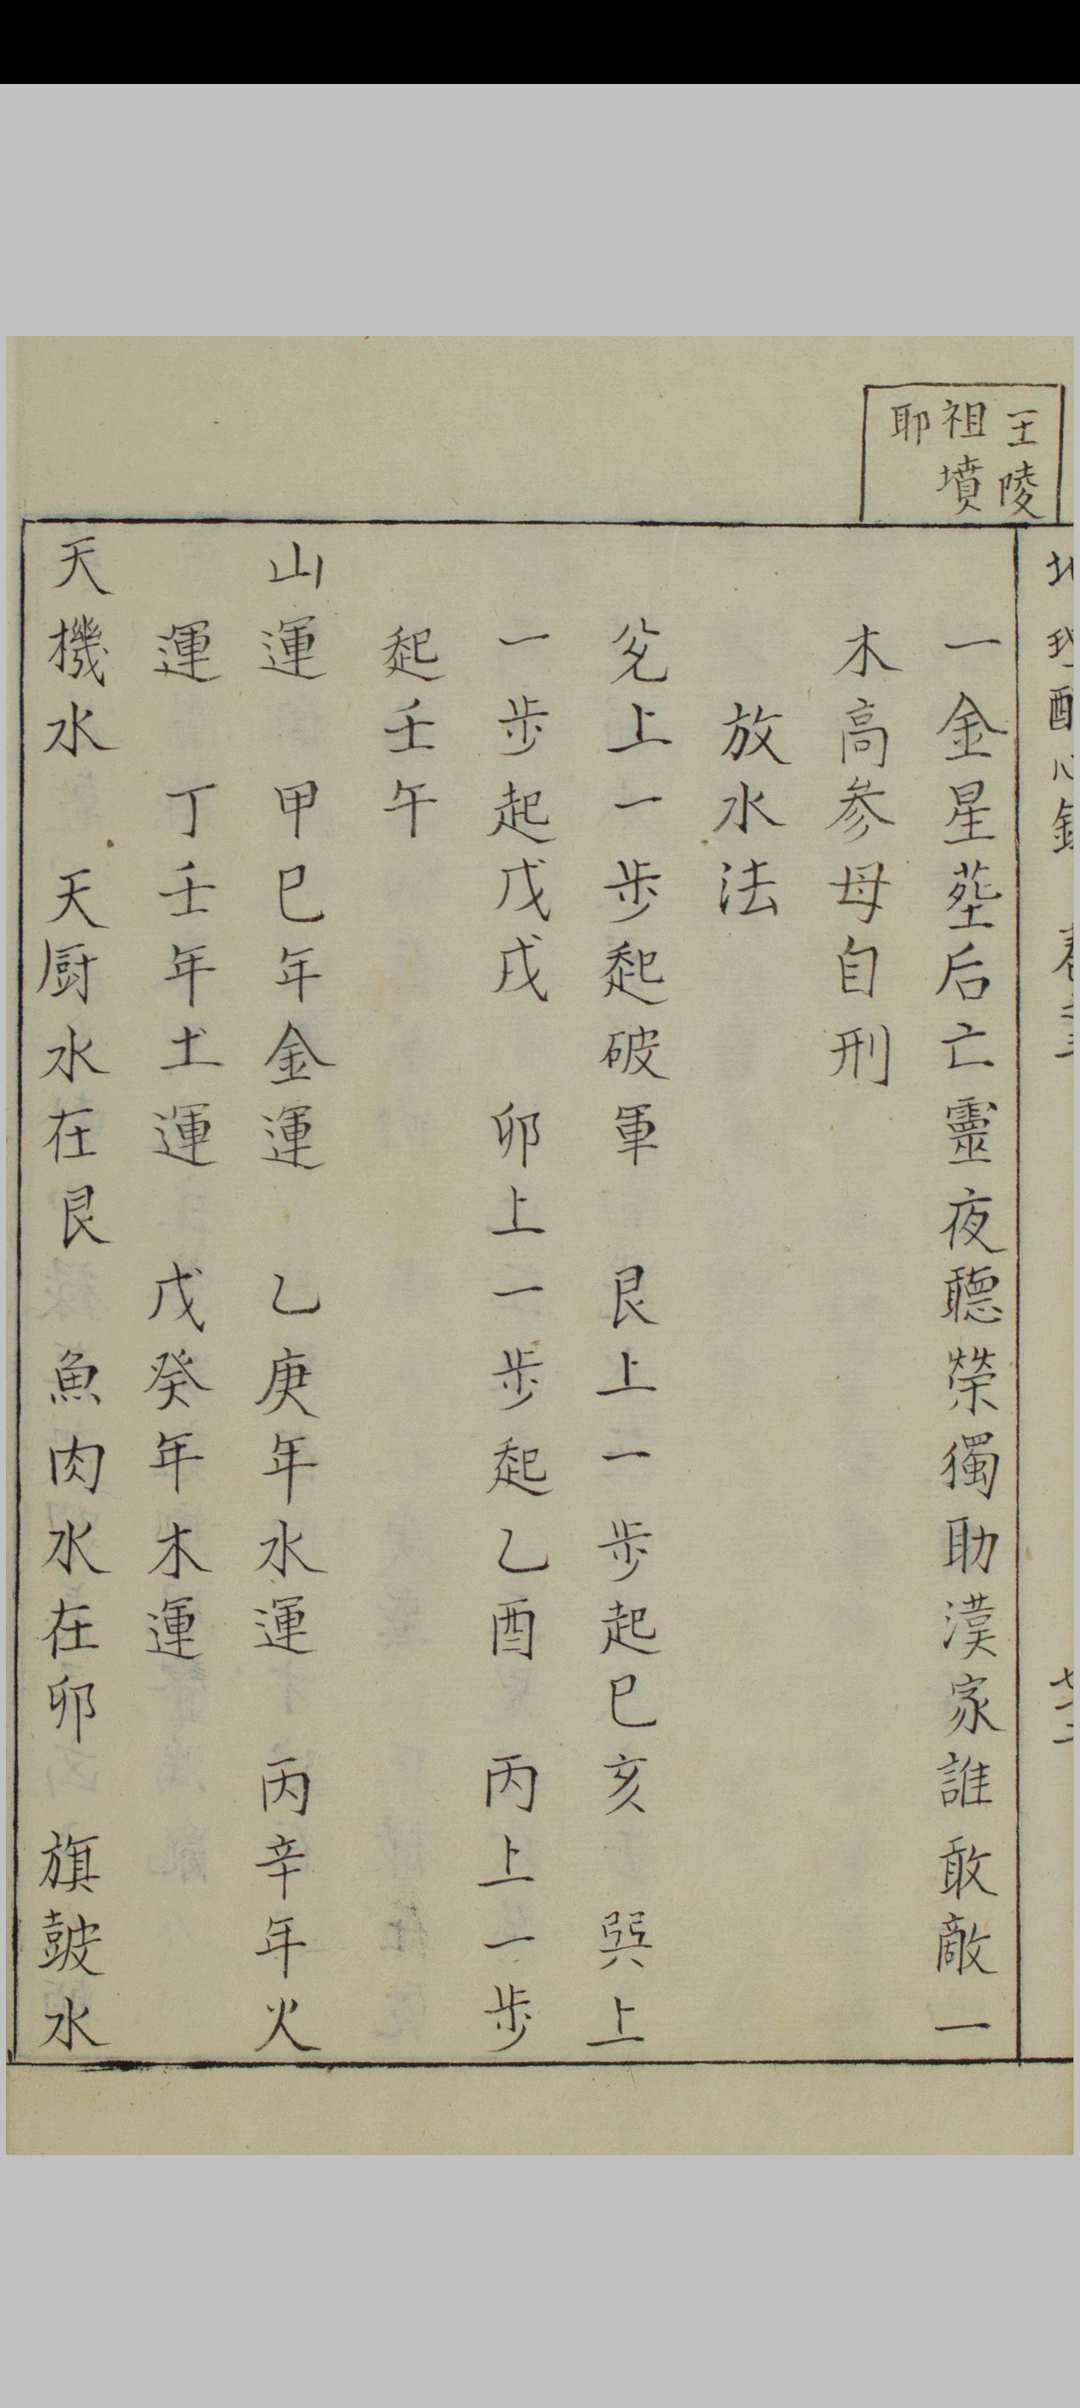 王陵
祖墳
耶
一金星塟后亡靈夜聽榮獨助漢家誰敢敵一
木高參母自刑
放水法
兊上一步起破軍 艮上一步起巳亥 巽上
一步起戊戌 卯上一步起乙酉 丙上一步
起壬午
山運 甲巳年金運 乙庚年水運 丙辛年火
運 丁壬年土運 戊癸年木運
天機水 天厨水在艮 魚肉水在卯 旗皷水